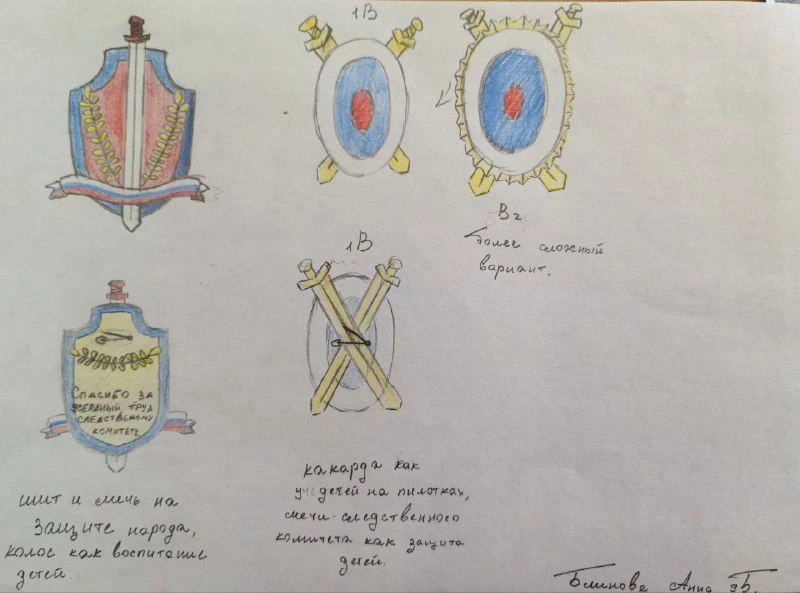 1В
В2
более сложный
вариант.
1В
Спасибо за
усердный труд
следственному
комитету
шит и мечь на
защите народа,
колос как воспитание
детей.
какарда как
у детей на пилотках,
мечи следственного
комитета как защита
детей.
Блинова Анна 9Б.